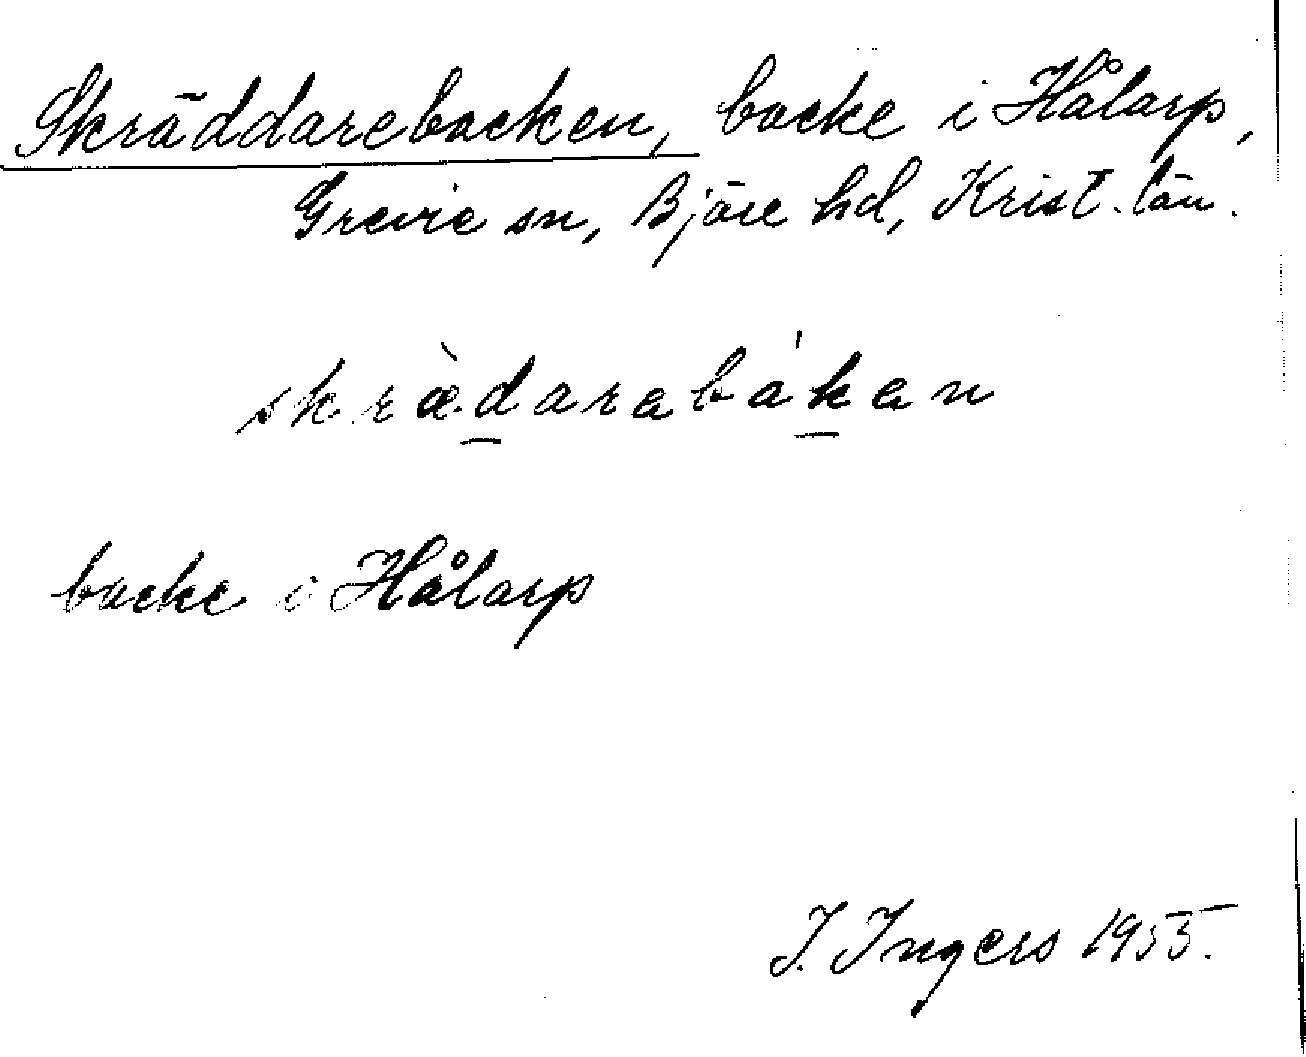 Skräddarebacken, backe i Hålarp,
Grevie sn, Bjäre hd, Krist. län.
skræ̀d̲arabák̲an
backe i Hålarp
I. Ingers 1955.